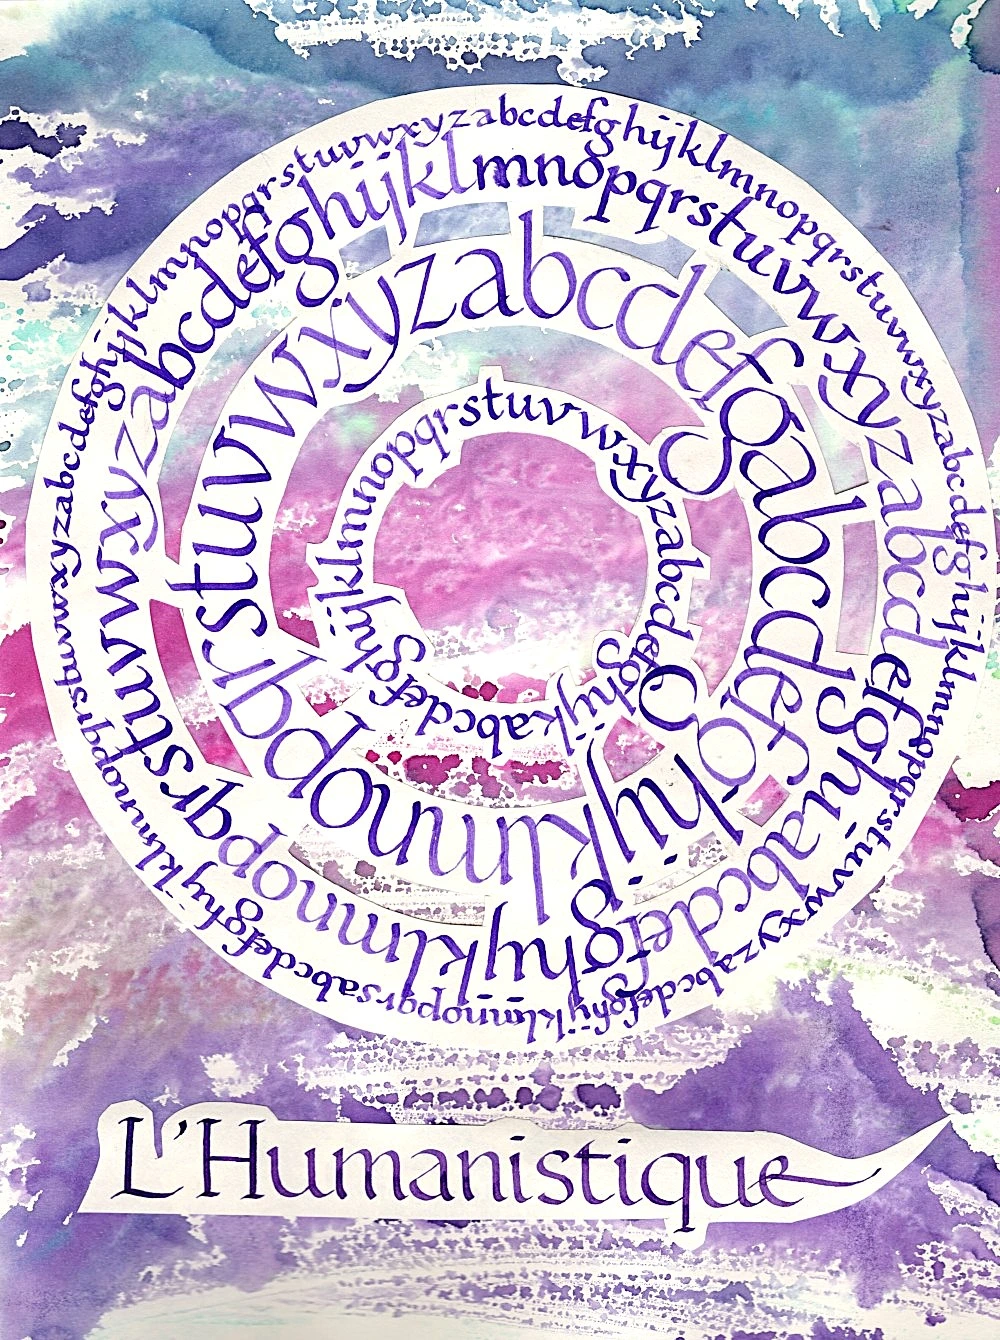 abcdefghijklmnopqrstuvwxyzabcdefghijklmnopqrstuvwxyzabcdefghijklmnopqrstuvwxyzabcdefghijklmnopqrsabcdefghijklmnopqrstuvwxyz
abcdefghijklmnopqrstuvwxyzabcdefghijabcdefghijklmnopqrstuvwxyz
abcdefgabcdefghijklmnopqrstuvwxyz
abcdefghijklmnopqrstuvwxyzabcdefghijk
L'Humanistique